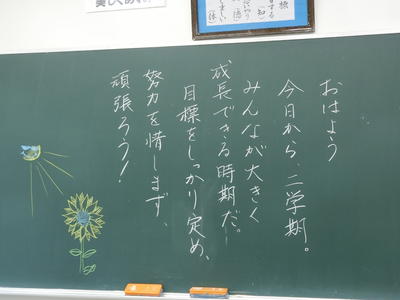 おはよう
今日から、二学期。
みんなが大きく
成長できる時期だ。
目標をしっかり定め、
努力を惜しまず、
頑張ろう！